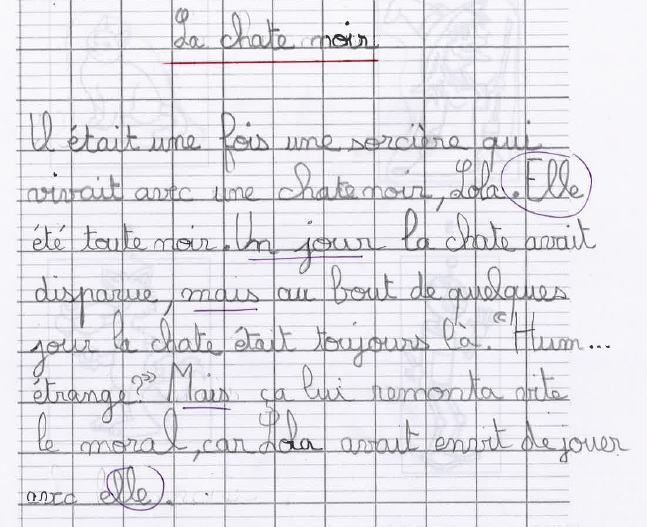 La chate noir
Il était une fois une sorcière qui
vivait avec une chate noir, Lola. Elle
été toute noir. Un jour la chate avait
disparue, mais au bout de quelques
jour la chate était toujours là. "Hum...
étrange?" Mais ça lui remonta vite
le moral, car Lola avait envit de jouer
avec elle.